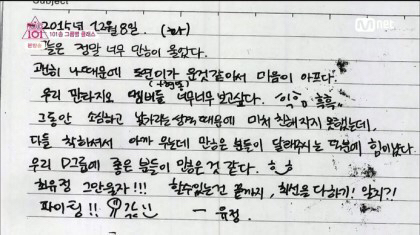 Subject
PRODUCE 101
101송 그룹별 클래스
Mnet
2015년 12월 8일. (화)
오늘은 정말 너무 많이 울었다.
괜히 나때문에 도연이가 운것같아서 마음이 아프다.
우리 판타지오 멤버들 너무너무 보고싶다.
그동안 소심하고 낯가리는 성격 때문에 미처 친해지지 못했는데,
다들 착하셔서 아까 우는데 많은 분들이 달래주시는 덕분에 힘이났다.
우리 D그룹에 좋은 분들이 많은것 같다.
최유정 그만울자!!! 할수있는건 끝까지, 최선을 다하기! 알지?!
파이팅!!
- 유정